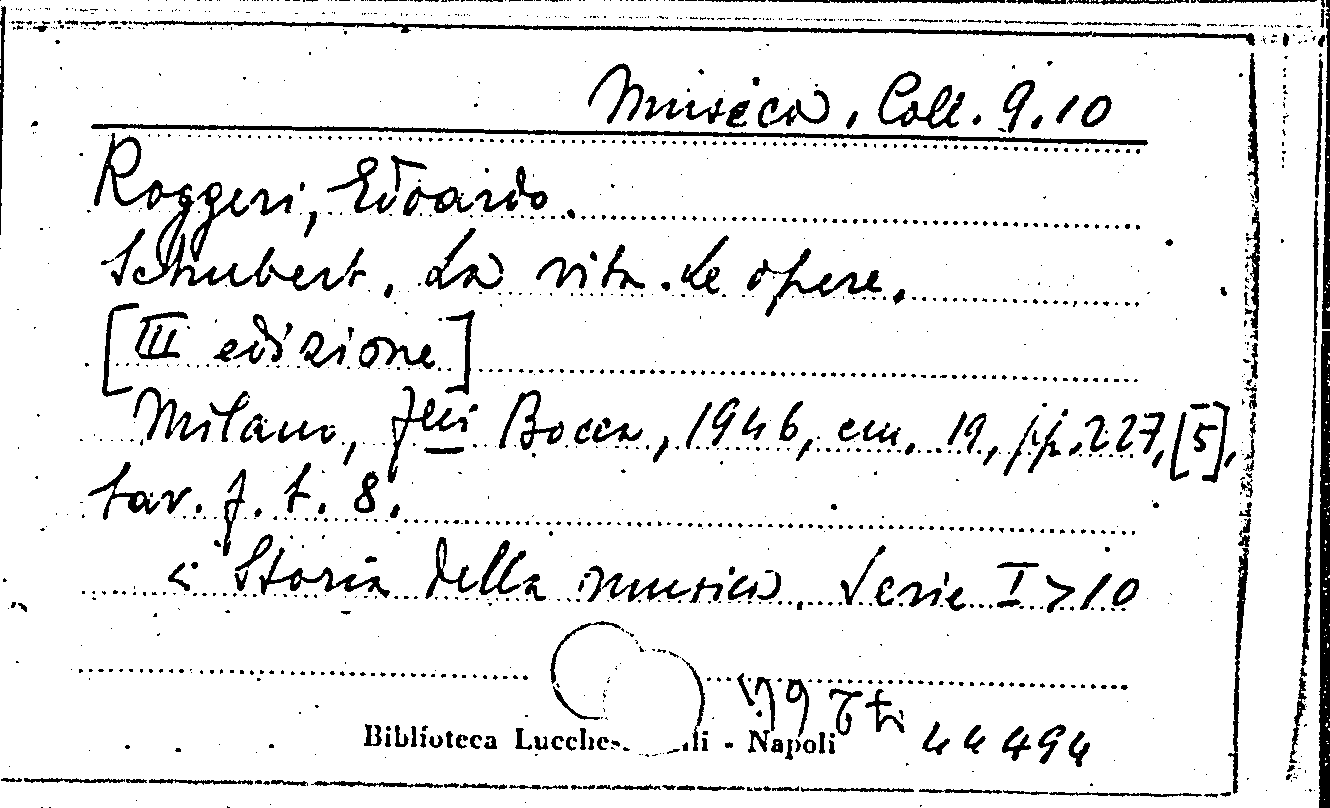 Musica. Coll. 9.10
Roggeri, Edoardo.
Schubert. La vita. Le opere.
[III edizione]
Milano, F.lli Bocca, 1946, cm. 19, pp. 227, [5],
tav. f. t. 8.
< Storia della musica. Serie I > 10
Biblioteca Lucches. li - Napoli
44494